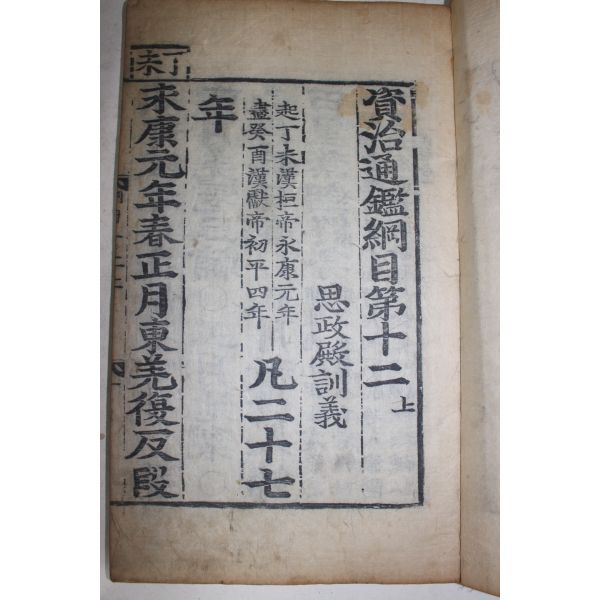 資治通鑑綱目第十二上
思政殿訓義
起丁未漢桓帝永康元年
盡癸酉漢獻帝初平四年
凡二十七
年
丁未
永康元年春正月東羌復反段